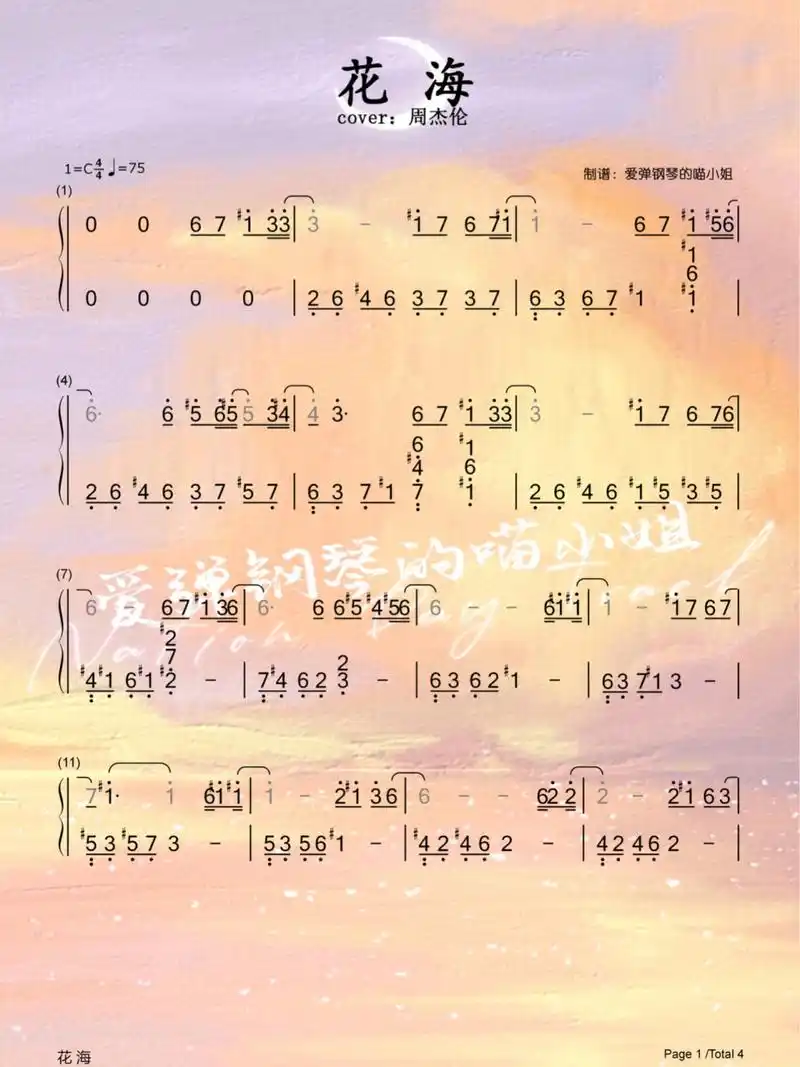 花 海
cover: 周杰伦
1=C 4/4 ♩=75
制谱：爱弹钢琴的喵小姐
(1)
0 0 6 7 #1 33 3 – #1 7 6 71 1 – 6 7 #1 #56
0 0 0 0 2 6 #4 6 3 7 3 7 6 3 6 7 #1 #1 6 #1
(4)
6· 6 #5 65 5 34 4 3· 6 7 #1 33 3 – #1 7 6 76
2 6 #4 6 3 7 #5 7 6 3 7 #1 6 #4 7 #1 6 #1 2 6 #4 6 #1 #5 #3 #5
爱弹钢琴的喵小姐
(7)
6 – 67 #1 36 6· 6 6#5 #4 #56 6 – – 61#1 1 – #17 67
#4#1 6#1 #2 7 #2 – 7#4 62 2 3 – 63 62 #1 – 63 7#1 3 –
(11)
7 #1· 1 61#1 1 – 2#1 36 6 – – 62 2 2 – 2#1 63
#53 #57 3 – 53 56 #1 – #42 #46 2 – 42 46 2 –
花 海
Page 1 /Total 4